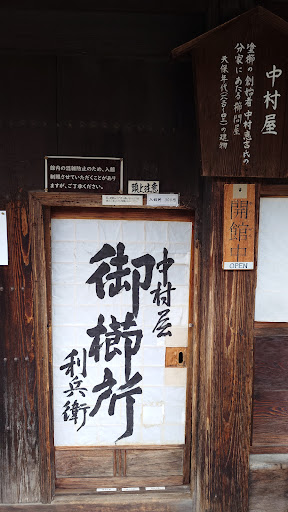 中村屋
塗櫛の創始者 中村恵吉氏の
分家にあたる櫛問屋
天保年代(1840)の建物
館内の混雑防止のため、入館
制限させていただくことがあり
ますが、ご了承ください。
頭上注意
開館中
OPEN
中村屋
御櫛所
利兵衛